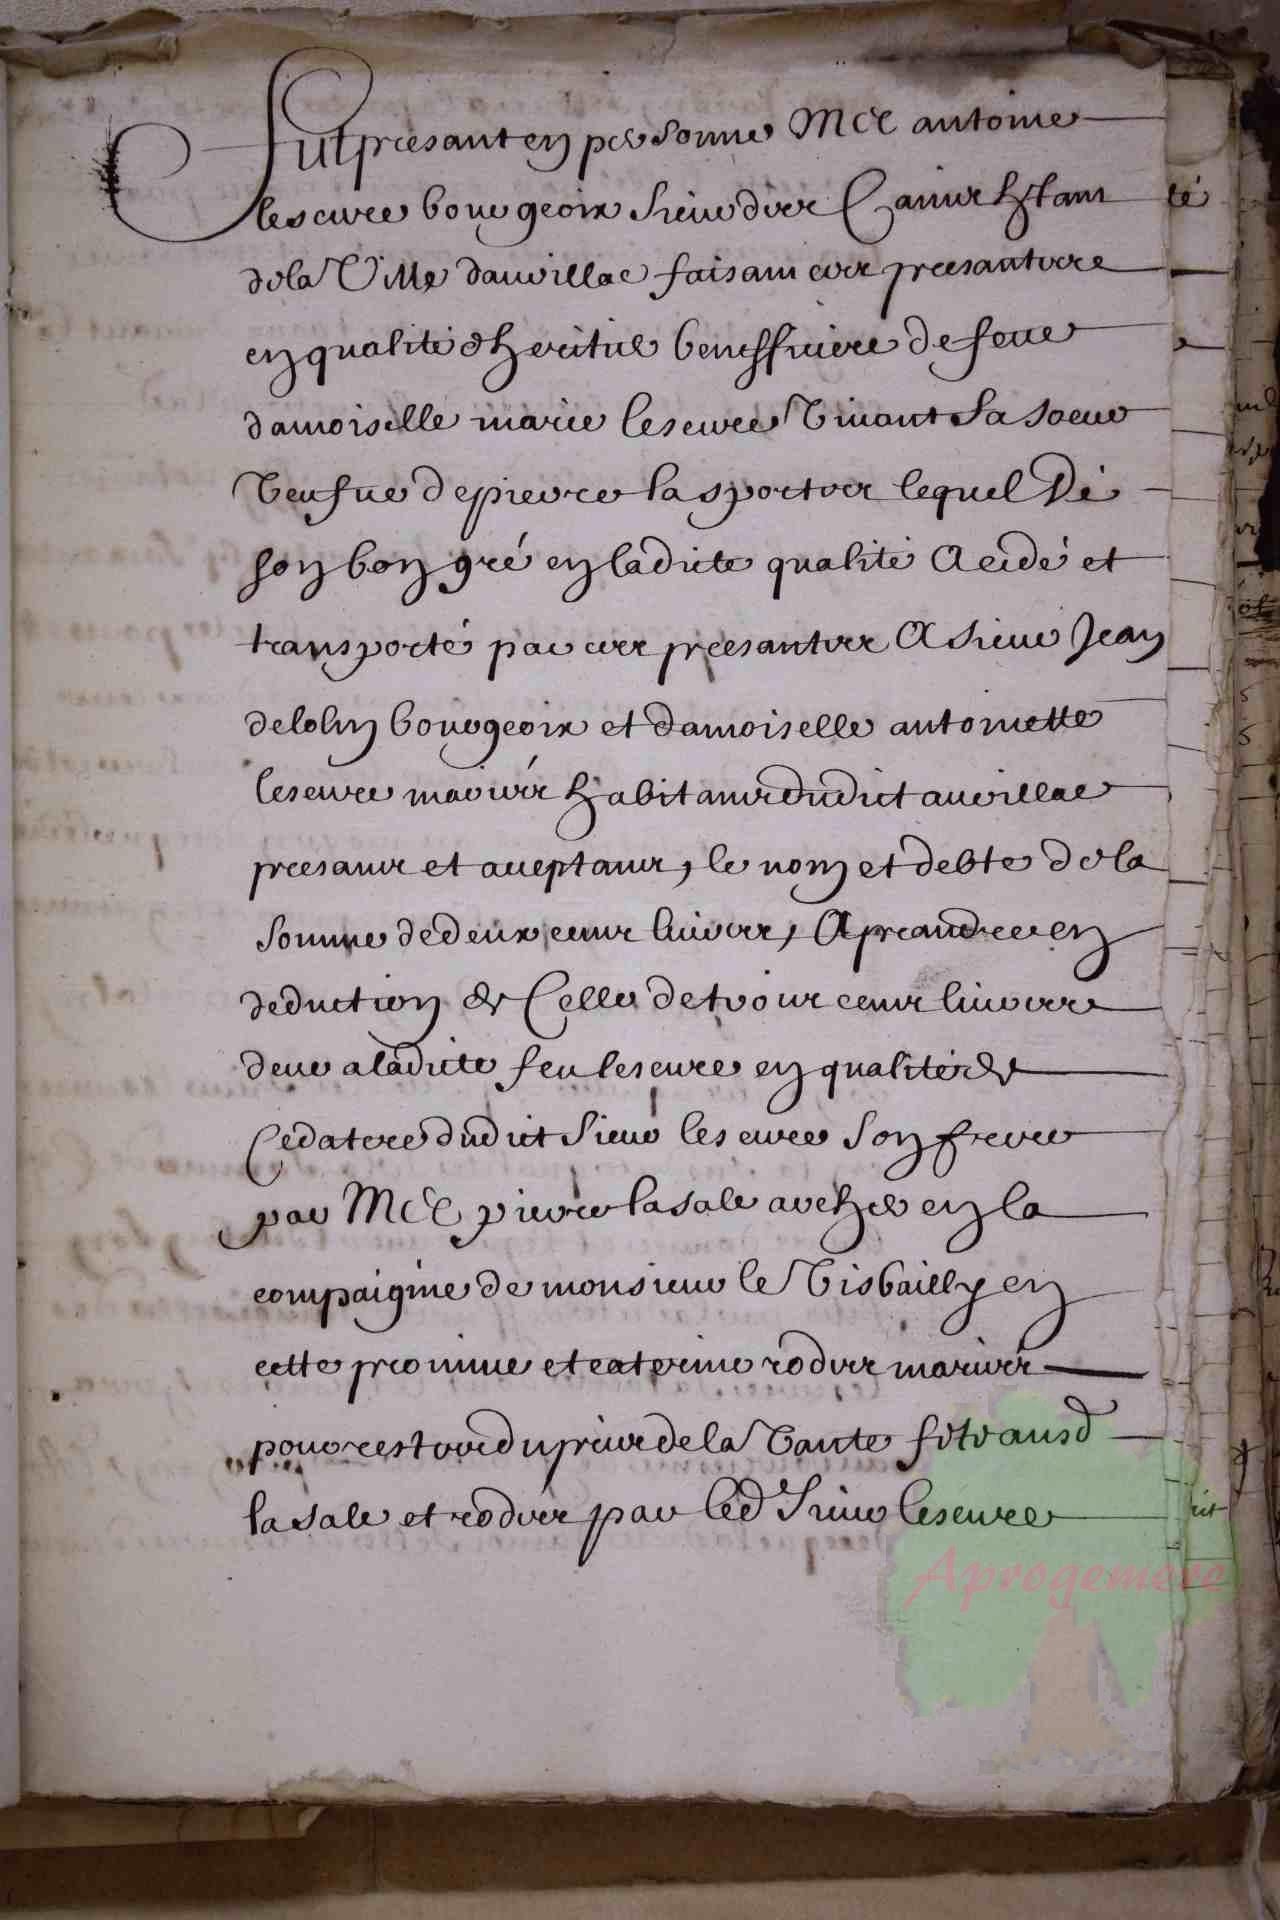 Fut presant en personne Mre antoine
lescure bourgeoix sieur des Camr hstant
de la Ville dauvillac faisant ces presantes
en qualité dheritier beneffiiere de feue
damoiselle marie lescure vivant sa soeur
veufue de pierre lasportes lequel de
son bon gré en ladite qualité a cédé et
transporté par ces presantes a sieur Jean
delohn bourgeoix et damoiselle antoinette
lescure mariés habitans dudict auvillac
presans et aceptans, le nom et debte de la
somme de deux cens livres, a prandre en
deduction de celle de trois cens livres
deue a ladite feu lescure en qualité de
cedatere dudict sieur lescure son frere
par Mre pierre lasale archer en la
compaignie de monsieur le visbailly en
cette province et caterine rodes mariés
pour restes du prix de la vante f
lasale et rodes par led sieur lescure
Aprogemere